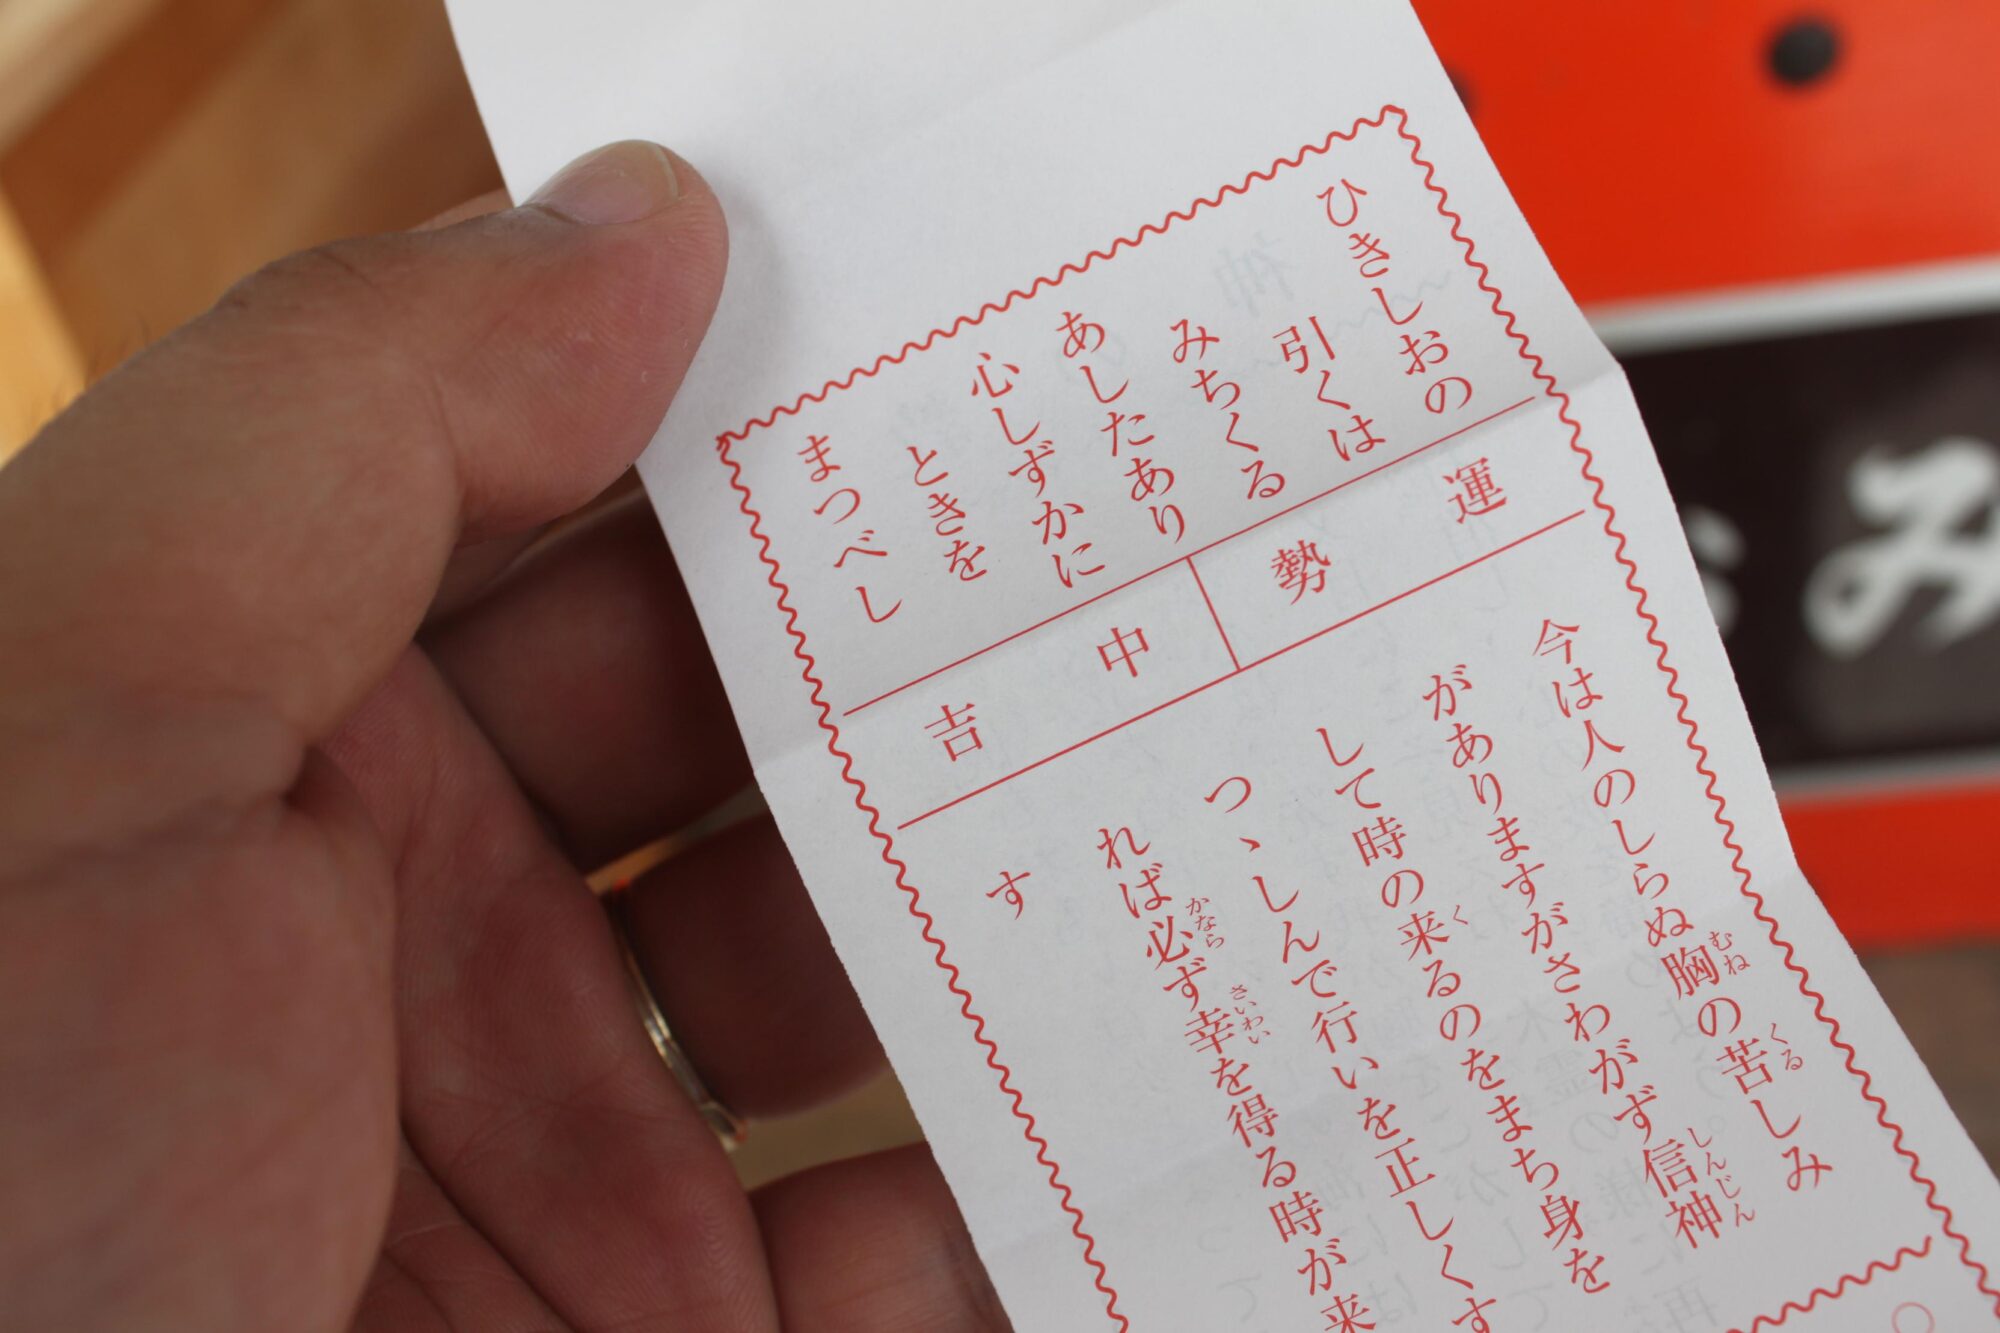 ひきしおの
引くは
みちくる
あしたあり
心しずかに
ときを
まつべし
運勢
中吉
今は人のしらぬ胸の苦しみ
むね
くる
がありますがさわがず信神
しんじん
して時の来るのをまち身を
く
つゝしんで行いを正しくす
れば必ず幸を得る時が来
かなら
さいわい
す
み